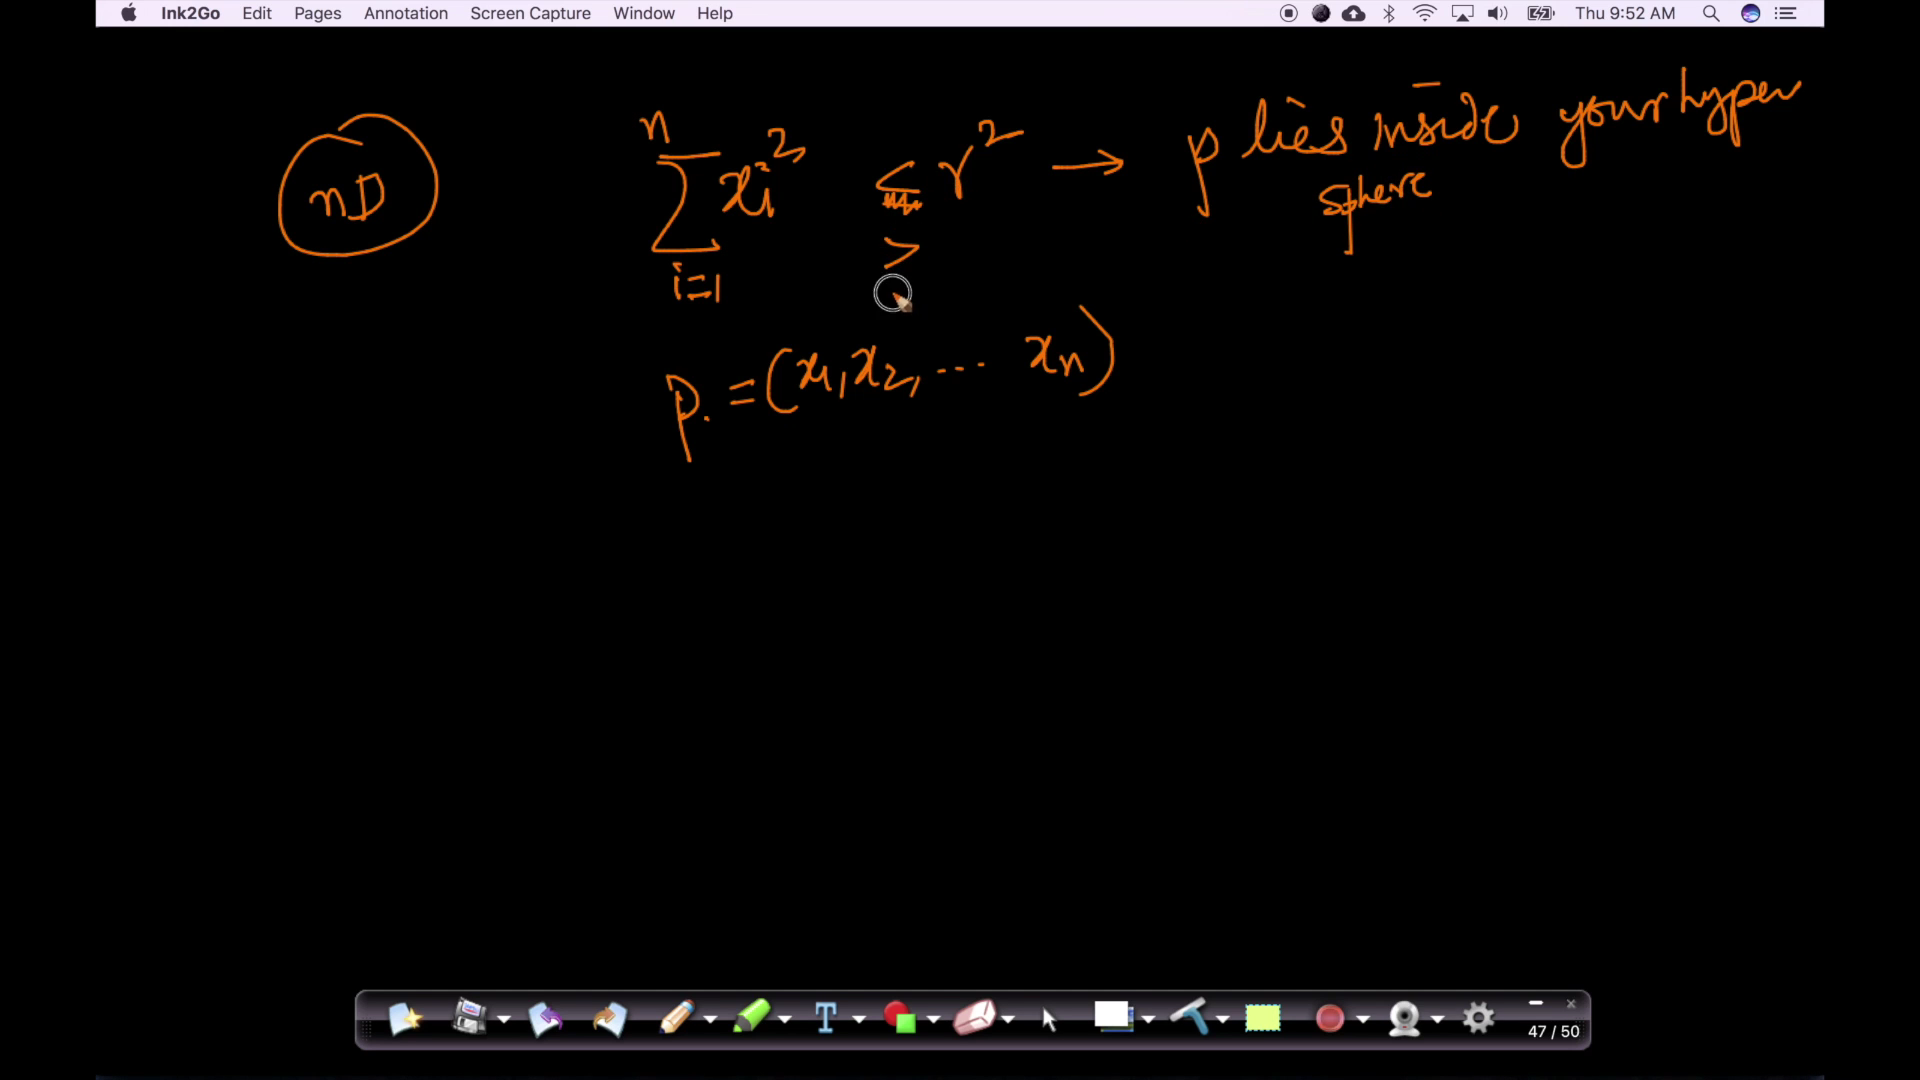 Ink2Go Edit Pages Annotation Screen Capture Window Help Thu 9:52 AM
nD
n
∑ xi² < r² → p lies inside your hyper
sphere
i=1
>
p. = (x1, x2, ... xn)
T
47 / 50